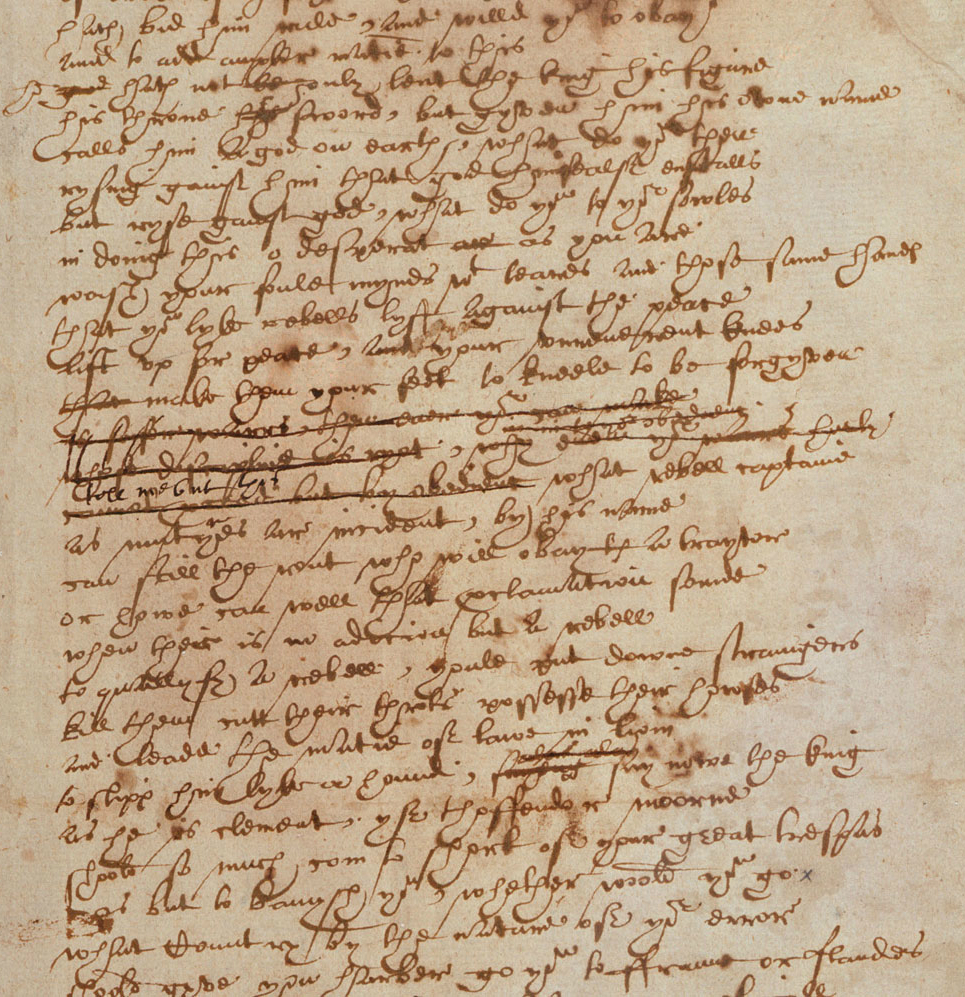 hath bid him rule, and willd yo to obay
and to add ampler matie to this
god hath not le only lent the king his figure
his throne his sword, but gyven him his owne name
calls him a god on earth, what do yo then
rysing gainst him that god himsealf enstalls
but ryse gainst god, what do yo to yor sowles
in doing this o desperat ar as you are
wash your foule mynds wt teares and those same hands
that yo lyke rebells lyft against the peace
lift up for peace, and your unreverent knees
that make them your feet to kneele to be forgyven
is safer warrs, then ever yo can make
whose discipline is ryot, why even yor warrs hurly
in in to yor obedienc
tell me but this
but by obedienc what rebell captaine
as mutynes ar incident, by his name
can still the rout who will obay th a traytor
or howe can well that proclamation sounde
when ther is no adicion but a rebell
to quallyfy a rebell, youle put downe straingers
kill them cutt their throts possesse their howses
and leade the matie of lawe in liom
to slipp him lyke a hound, say nowe the king
as he is clement, yf thoffendor moorne
shoold so much com to short of your great trespas
as but to banysh yo, whether woold yo go
what Country by the nature of yor error
shoold gyve you harber go yo to ffraunc or flanders